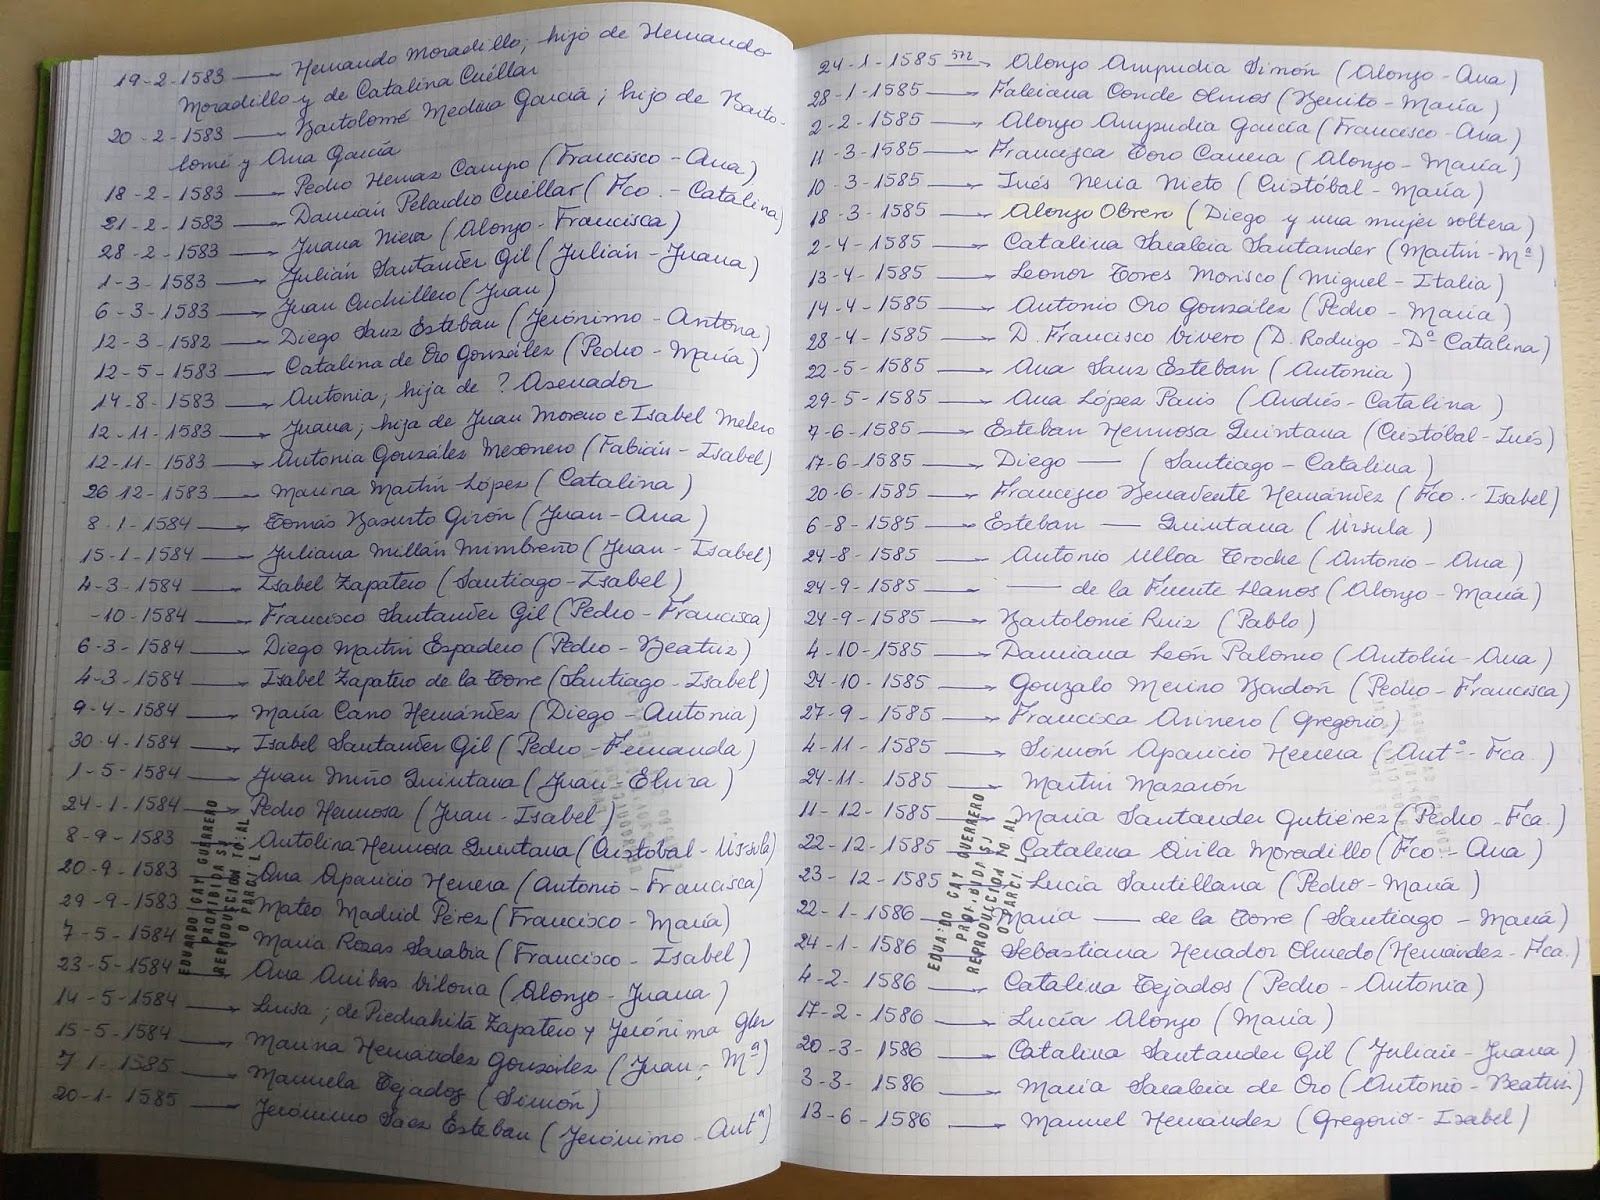 19-2-1583 — Hernando Moradillo; hijo de Hernando
Moradillo y de Catalina Cuéllar
20-2-1583 — Bartolomé Medina García; hijo de Barto-
lomé y Ana García
18-2-1583 — Pedro Herraz Campo (Francisco-Ana)
21-2-1583 — Damián Pelaudio Cuéllar (Fco.-Catalina)
28-2-1583 — Juana Nieva (Alonzo-Francisca)
1-3-1583 — Julián Santander Gil (Julián-Juana)
6-3-1583 — Juan Cuchillero (Juan)
12-3-1582 — Diego Sanz Esteban (Jerónimo-Antona)
12-5-1583 — Catalina de Oro González (Pedro-María)
14-8-1583 — Antonia; hija de ? Asenador
12-11-1583 — Juana; hija de Juan Moreno e Isabel Melero
12-11-1583 — Antonia González Mesonero (Fabián-Isabel)
26 12-1583 — Marina Martín López (Catalina)
8-1-1584 — Tomás Basurto Girón (Juan-Ana)
15-1-1584 — Juliana Millán Mimbreño (Juan-Isabel)
4-3-1584 — Isabel Zapatero (Santiago-Isabel)
-10-1584 — Francisco Santander Gil (Pedro-Francisca)
6-3-1584 — Diego Martín Espadero (Pedro-Beatriz)
4-3-1584 — Isabel Zapatero de la Torre (Santiago-Isabel)
9-4-1584 — María Cano Hernández (Diego-Antonia)
30-4-1584 — Isabel Santander Gil (Pedro-Fernanda)
1-5-1584 — Juan Miño Quintana (Juan-Elvira)
24-1-1584 — Pedro Hermosa (Juan-Isabel)
8-9-1583 — Antolina Hermosa Quintana (Cristóbal-Úrsula)
20-9-1583 — Ana Aparicio Herrera (Antonio-Francisca)
29-9-1583 — Mateo Madrid Pérez (Francisco-María)
7-5-1584 — María Rozas Sarabia (Francisco-Isabel)
23-5-1584 — Ana Arribas Viloria (Alonzo-Juana)
14-5-1584 — Luisa; de Piedrahitá Zapatero y Jerónima Glez
15-5-1584 — Marina Hernández González (Juan-Mª)
7 1-1585 — Manuela Tejados (Simón)
20-1-1585 — Jerónimo Sáez Esteban (Jerónimo-Antª)
EDUARDO GAY GUERRERO
PROHIBIDA SU
REPRODUCCION TOTAL
O PARCIAL
24-1-1585 572 Alonzo Ampudia Simón (Alonzo-Ana)
28-1-1585 — Fabiana Conde Olmos (Benito-María)
2-2-1585 — Alonzo Ampudia García (Francisco-Ana)
11-3-1585 — Francisca Toro Carrera (Alonzo-María)
10-3-1585 — Inés Neria Nieto (Cristóbal-María)
18-3-1585 — Alonzo Obrero (Diego y una mujer soltera)
2-4-1585 — Catalina Sarabia Santander (Martín-Mª)
13-4-1585 — Leonor Tores Morisco (Miguel-Italia)
14-4-1585 — Antonio Oro González (Pedro-María)
28-4-1585 — D. Francisco Vivero (D. Rodrigo-Dª Catalina)
22-5-1585 — Ana Sanz Esteban (Antonia)
29-5-1585 — Ana López Paris (Andrés-Catalina)
7-6-1585 — Esteban Hermosa Quintana (Cristóbal-Inés)
17-6-1585 — Diego — (Santiago-Catalina)
20-6-1585 — Francisco Benavente Hernández (Fco.-Isabel)
6-8-1585 — Esteban — Quintana (Úrsula)
24-8-1585 — Antonio Ulloa Troche (Antonio-Ana)
24-9-1585 — de la Fuente Llanos (Alonzo-María)
24-9-1585 — Bartolomé Ruiz (Pablo)
4-10-1585 — Damiana León Palomo (Antolín-Ana)
24-10-1585 — Gonzalo Merino Bordón (Pedro-Francisca)
27-9-1585 — Francisca Arinero (Gregorio)
4-11-1585 — Simón Aparicio Herrera (Antº-Fca.)
24-11-1585 — Martín Mazarón
11-12-1585 — María Santander Gutiérez (Pedro-Fca.)
22-12-1585 — Catalina Ávila Moradillo (Fco-Ana)
23-12-1585 — Lucía Santillana (Pedro-María)
22-1-1586 — María — de la Torre (Santiago-María)
24-1-1586 — Sebastiana Herrador Olmedo (Hernández-Fca.)
4-2-1586 — Catalina Tejados (Pedro-Antonia)
17-2-1586 — Lucía Alonzo (María)
20-3-1586 — Catalina Santander Gil (Julián-Juana)
3-3-1586 — María Sarabia de Oro (Antonio-Beatriz)
13-6-1586 — Manuel Hernández (Gregorio-Isabel)
EDUARDO GAY GUERRERO
PROHIBIDA SU
REPRODUCCION TOTAL
O PARCIAL